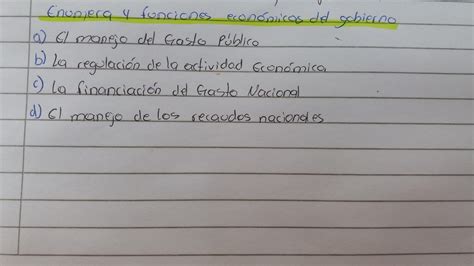 Enumera y funciones económicas del gobierno
a) El manejo del Gasto Público
b) La regulación de la actividad Económica
c) La financiación del Gasto Nacional
d) El manejo de los recaudos nacionales